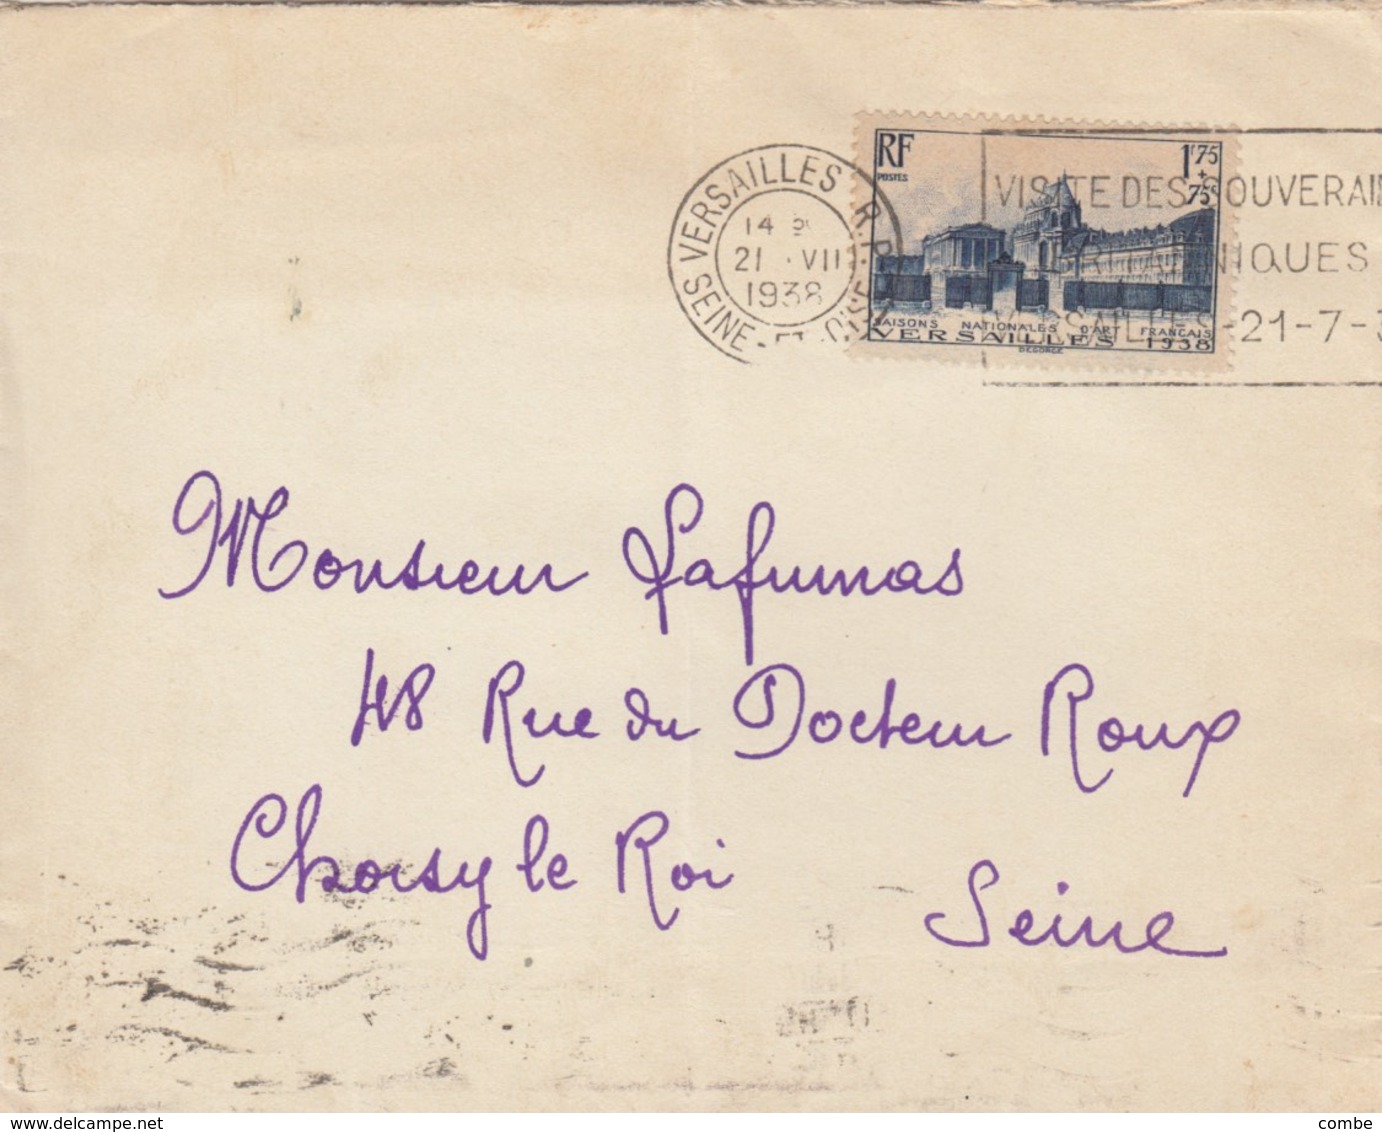 RF
POSTES
1F75
+
75c
VERSAILLES R.P.
14
21 · VII
1938
SEINE-ET-OISE
VISITE DES SOUVERAI
BRITANNIQUES
VERSAILLES-21-7-3
SAISONS NATIONALES D'ART FRANÇAIS
VERSAILLES 1938
DEGORCE
Monsieur Lafumas
48 Rue du Docteur Roux
Choisy le Roi
Seine
delcampe.net
combe